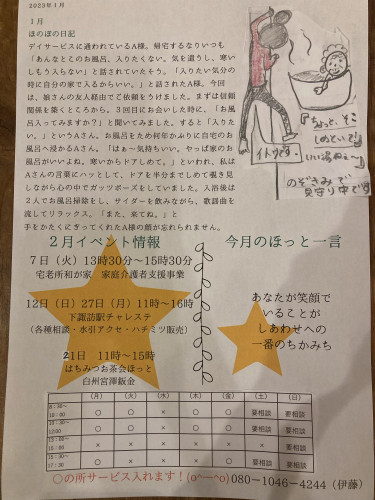 2023年1月
1月
ほのぼの日記
デイサービスに通われているA様。帰宅するなりいつも
「あんなとこのお風呂、入りたくない。気を遣うし、寒い
しもう入らない」と話されていたそう。「入りたい気分の
時に自分の家で入るからいい。」と話されたA様。今回
は、娘さんの友人経由でご依頼をうけました。まずは信頼
関係を築くところから。3回目にお会いした時に、「お風
呂入ってみますか？」と聞いてみました。すると「入りた
い。」というAさん。お風呂をため何年かぶりに自宅のお
風呂へ浸かるAさん。「はぁ～気持ちいい。やっぱ家のお
風呂がいいよね。寒いからドアしめて。」といわれ、私は
Aさんの言葉にハッとして、ドアを半分までしめて覗き見
しながら心の中でガッツポーズをしていました。入浴後は
2人でお風呂掃除をし、サイダーを飲みながら、歌謡曲を
流してリラックス。「また、来てね。」と
手をかたくにぎってくれたA様の顔が忘れられません。
イトウです
『ちょっと、そこ
しめといて』
いい湯ねぇ～
のぞきみで
見守り中です
2月イベント情報
7日（火）13時30分～15時30分
宅老所和が家　家庭介護者支援事業
12日（日）27日（月）11時～16時
下諏訪駅チャレステ
（各種相談・水引アクセ・ハチミツ販売）
21日　11時～15時
はちみつお茶会ほっと
白州宮澤鈑金
今月のほっと一言
あなたが笑顔で
いることが
しあわせへの
一番のちかみち
（月） （火） （水） （木） （金） （土） （日）
○ ○ × ○ ○ 要相談 要相談
○ ○ × ○ ○ 要相談 要相談
× × × × × 要相談 要相談
○ ○ × × ○ 要相談 要相談
〇の所サービス入れます！(o^―^o) 080～1046～4244（伊藤）